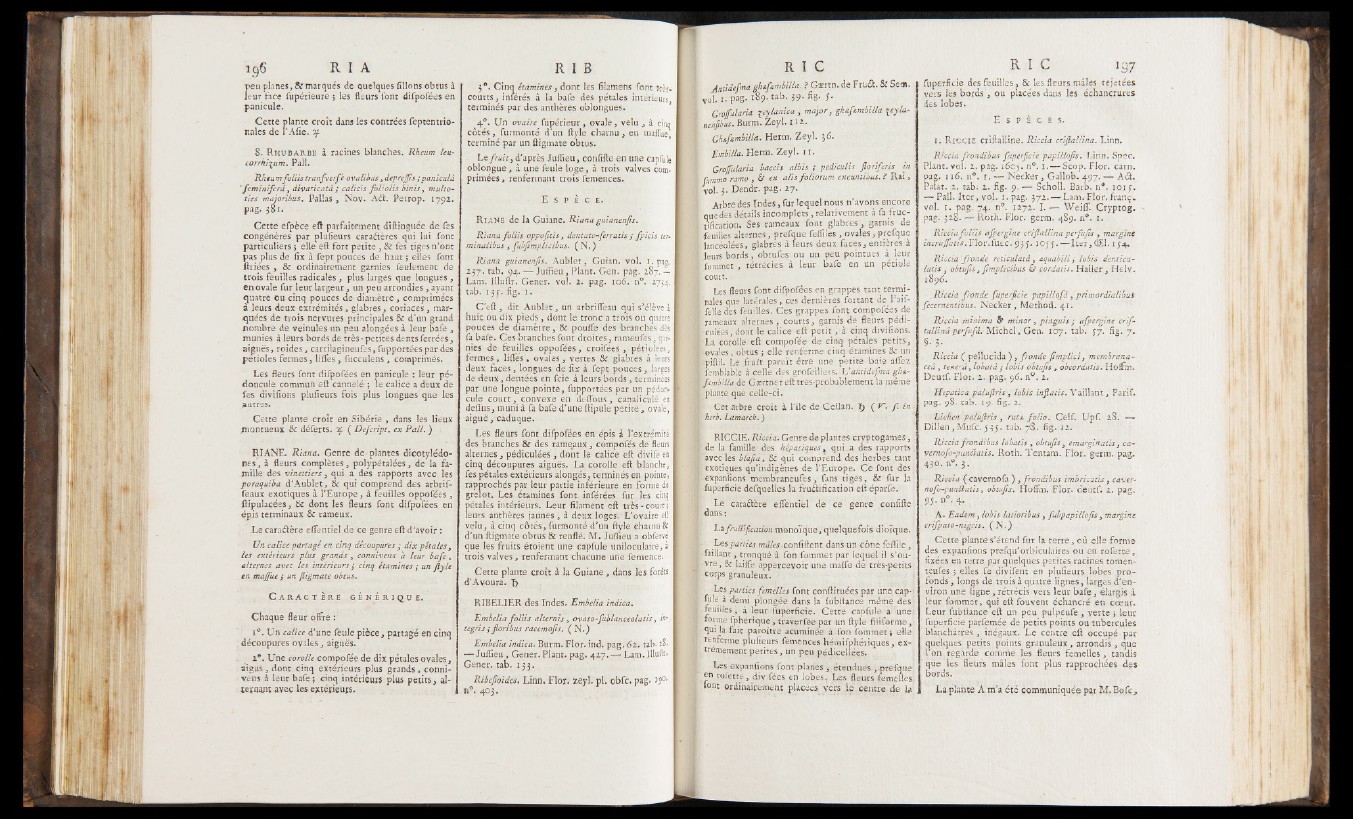 196 R I A
peu planes, & marqués de quelques sillons obtus à
leur face supérieure ; les fleurs sont disposées en
panicule.
Cette plante croît dans les contrées septentrio-
nales de l'Asie. ♃
8. RHUBARBE à racines blanches. Rheum leu-
corrhizum. Pall.
Rheum foliis transversè ovalibus, depressis ; paniculâ
feminiferâ, divaricatâ ; calicis foliolis binis, multo-
ties majoribus. Pallas, Nov. Act. Petrop. 1792.
pag. 381.
Cette espèce est parfaitement distinguée de ses
congénères par plusieurs caractères qui lui sont
particuliers ; elle est fort petite, & ses tiges n'ont
pas plus de six à sept pouces de haut ; elles sont
striées, & ordinairement garnies seulement de
trois feuilles radicales, plus larges que longues,
en ovale sur leur largeur, un peu arrondies, ayant
quatre ou cinq pouces de diamètre, comprimées
à leurs deux extrémités, glabres, coriaces, mar-
quées de trois nervures principales & d'un grand
nombre de veinules un peu alongées à leur base,
munies à leurs bords de très-petites dents serrées,
aiguës, roides, cartilagineuses, supportées par des
pétioles fermes, lisses, succulens, comprimés.
Les fleurs sont disposées en panicule : leur pé-
doncule commun est cannelé ; le calice a deux de
ses divisions plusieurs fois plus longues que les
autres.
Cette plante croît en Sibérie, dans les lieux
montueux & déserts. ♃ ( Descript. ex Pall. )
RIANE. Riana. Genre de plantes dicotylédo-
nes, à fleurs complètes, polypétalées, de la fa-
mille des vinettiers, qui a des rapports avec les
poraqueiba d'Aublet, & qui comprend des arbris-
seaux exotiques à l'Europe, à feuilles opposées,
stipulacées, & dont les fleurs sont disposées en
épis terminaux & rameux.
Le caractère essentiel de ce genre est d'avoir :
Un calice partagé en cinq découpures ; dix pétales,
les extérieurs plus grands, connivens à leur base,
alternes avec les intérieurs ; cinq étamines ; un style
en massue ; un stigmate obtus.
CARACTÈRE GÉNÉRIQUE.
Chaque fleur offre :
1°. Un calice d'une seule pièce, partagé en cinq
découpures ovales, aiguës.
2°. Une corolle composée de dix pétales ovales,
aigus, dont cinq extérieurs plus grands, conni-
vens à leur base ; cinq intérieurs plus petits, al-
ternant avec les extérieurs.
R I B
3°. Cinq étamines, dont les filamens sont très-
courts, insérés à la base des pétales intérieurs,
terminés par des anthères oblongues.
4°. Un ovaire supérieur, ovale, velu, à cinq
côtés, surmonté d'un style charnu, en massue,
terminé par un stigmate obtus.
Le fruit, d'après Jussieu, consiste en une capsule
oblongue, à une seule loge, à trois valves com-
primées, renfermant trois semences.
ESPÈCE.
RIANE de la Guiane. Riana guianensis.
Riana foliis oppositis, dentato-serratis ; spicis ter-
minalibus, subsimplicibus. ( N. )
Riana guianensis. Aublet, Guian. vol. 1. pag.
237. tab. 94. — Jussieu, Plant. Gen. pag. 287. —
Lam. Illustr. Gener. vol. 2. pag. 106. n°. 2734.
tab. 135. fig. 1.
C'est, dit Aublet, un arbrisseau qui s'élève à
huit ou dix pieds, dont le tronc a trois ou quatre
pouces de diamètre, & pousse des branches dès
sa base. Ces branches sont droites, rameuses, gar-
nies de feuilles opposées, croisées, pétiolées,
fermes, lisses, ovales, vertes & glabres à leurs
deux faces, longues de six à sept pouces, larges
de deux, dentées en scie à leurs bords, terminées
par une longue pointe, supportées par un pédon-
cule court, convexe en dessous, canaliculé en
dessus, muni à sa base d'une stipule petite, ovale,
aiguë, caduque.
Les fleurs sont disposées en épis à l'extrémité
des branches & des rameaux, composés de fleurs
alternes, pédiculées, dont le calice est divisé en
cinq découpures aiguës. La corolle est blanche,
ses pétales extérieurs alongés, terminés en pointe,
rapprochés par leur partie inférieure en forme de
grelot. Les étamines sont insérées sur les cinq
pétales intérieurs. Leur filament est très-court ;
leurs anthères jaunes, à deux loges. L'ovaire est
velu, à cinq côtés, surmonté d'un style charnu &
d'un stigmate obtus & renflé. M. Jussieu a observé
que les fruits étoient une capsule uniloculaire, à
trois valves, renfermant chacune une semence.
Cette plante croît à la Guiane, dans les forêts
d'Avoura. ♄
RIBELIER des Indes. Embelia indica.
Embelia foliis alternis, ovato-sublanceolatis, in-
tegris ; floribus racemosis. ( N. )
Embelia indica. Burm. Flor. ind. pag. 62. tab. 28.
— Jussieu, Gener. Plant. pag. 427. — Lam. Illustr.
Gener. tab. 133.
Ribesioides. Linn. Flor. zeyl. pl. obsc. pag. 190.
n°. 403.
R I C
Antidesma ghesambilla. ? Gærtn. de Fruct. & Sem.
vol. 1. pag. 189. tab. 39. fig. 5.
Grossularia zeylanica, major, ghesembilla zeyla-
nensibus. Burm. Zeyl. 112.
Ghesembilla. Herm. Zeyl. 36.
Embilla. Herm. Zeyl. 11.
Grossularia baccis albis ; pediculis floriferis in
summo ramo, & ex alis foliorum exeuntibus. ? Rai,
vol. 3. Dendr. pag. 27.
Arbre des Indes, sur lequel nous n'avons encore
que des détails incomplets, relativement à sa fruc-
tification. Ses rameaux sont glabres, garnis de
feuilles alternes, presque sessiles, ovales, presque
lancéolées, glabres à leurs deux faces, entières à
leurs bords, obtuses ou un peu pointues à leur
sommet, rétrécies à leur base en un pétiole
court.
Les fleurs sont disposées en grappes tant termi-
nales que latérales, ces dernières sortant de l'ais-
selle des feuilles. Ces grappes sont composées de
rameaux alternes, courts, garnis de fleurs pédi-
culées, dont le calice est petit, à cinq divisions.
La corolle est composée de cinq pétales petits,
ovales, obtus ; elle renferme cinq étamines & un
pistil. Le fruit paroît être une petite baie assez
semblable à celle des groseillers. L'antidesma ghe-
sembilla de Gærtner est très-probablement la même
plante que celle-ci.
Cet arbre croît à l'île de Ceilan. ♄ ( V. s. in
herb. Lamarck. )
RICCIE. Riccia. Genre de plantes cryptogames,
de la famille des hépatiques, qui a des rapports
avec les blasia, & qui comprend des herbes tant
exotiques qu'indigènes de l'Europe. Ce sont des
expansions membraneuses, sans tiges, & sur la
superficie desquelles la fructification est éparse.
Le caractère essentiel de ce genre consiste
dans :
La fructification monoïque, quelquefois dioïque.
Les parties mâles consistent dans un cône sessile,
saillant, tronqué à son sommet par lequel il s'ou-
vre, & laisse appercevoir une masse de très-petits
corps granuleux.
Les parties femelles sont constituées par une cap-
sule à demi plongée dans la substance même des
feuilles, à leur superficie. Cette capsule a une
forme sphérique, traversée par un style filiforme,
qui la fait paroître acuminée à son sommet ; elle
renferme plusieurs semences hémisphériques, ex-
trêmement petites, un peu pédicellées.
Les expansions sont planes, étendues, presque
en rosette, divisées en lobes. Les fleurs femelles
sont ordinairement placées vers le centre de la
R I C 197
superficie des feuilles, & les fleurs mâles rejetées
vers les bords, ou placées dans les échancrures
des lobes.
ESPÈCES.
1. RICCIE cristalline. Riccia cristallina. Linn.
Riccia frondibus superficie papillosis. Linn. Spec.
Plant. vol. 2. pag. 1605. n°. 1. — Scop. Flor. carn.
pag. 116. n°. 1. — Necker, Gallob. 497. — Act.
Palat. 2. tab. 2. fig. 9. — Scholl. Barb. n°. 1015.
— Pall. Iter, vol. 1. pag. 372. — Lam. Flor. franç.
vol. 1. pag. 74. n°. 1272. I. — Weiss. Cryptog.
pag. 328. — Roth. Flor. germ. 489. n°. 1.
Riccia foliis aspergine cristallina perfusis, margine
incrassatis. Flor. suec. 935. 1055. — Iter, Œl. 154.
Riccia fronde reticulatâ, aquabili, lobis denticu-
latis, obtusis, simplicibus & cordatis. Haller, Helv.
1896.
Riccia fronde superficie papillosâ, primordialibus
secernentibus. Necker, Method. 41.
Riccia minima & minor, pinguis ; aspergine cris-
tallinâ perfusâ. Michel, Gen. 107. tab. 57. fig. 7.
g. 3.
Riccia ( pellucida ), fronde simplici, membrana-
ceâ, tenerâ, lobatâ ; lobis obtusis, obcordatis. Hoffm.
Deutf. Flor. 2. pag. 96. n°. 2.
Hepatica palustris, lobis inflatis. Vaillant, Paris.
pag. 98. tab. 19. fig. 2.
Lichen palustris, ruta folio. Celf. Upf. 28. —
Dillen, Musc. 535. tab. 78. fig. 12.
Riccia frondibus lobatis, obtusis, emarginatis, ca-
vernoso-punctatis. Roth. Tentam. Flor. germ. pag.
430. n°. 3.
Riccia ( cavernosa ), frondibus imbricatis, caver-
noso-punctatis, obtusis. Hoffm. Flor. deutf. 2. pag.
95. n°. 4.
A. Eadem, lobis latioribus, subpapillosis, margine
crispato-nigris. ( N. )
Cette plante s'étend sur la terre, où elle forme
des expansions presqu'orbiculaires ou en rosette,
fixées en terre par quelques petites racines tomen-
teuses ; elles se divisent en plusieurs lobes pro-
fonds, longs de trois à quatre lignes, larges d'en-
viron une ligne, rétrécis vers leur base, élargis à
leur sommet, qui est souvent échancré en cœur.
Leur substance est un peu pulpeuse, verte ; leur
superficie parsemée de petits points ou tubercules
blanchâtres, inégaux. Le centre est occupé par
quelques petits points granuleux, arrondis, que
l'on regarde comme les fleurs femelles, tandis
que les fleurs mâles sont plus rapprochées des
bords.
La plante A m'a été communiquée par M. Bosc,